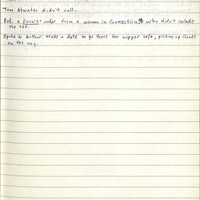 Tom Atwater didn't call.
Rec. a FOCUS order from a woman in Connecticut who didn't include
the tax.
Spoke to Arthur. Made a date to go there for supper
on the way.